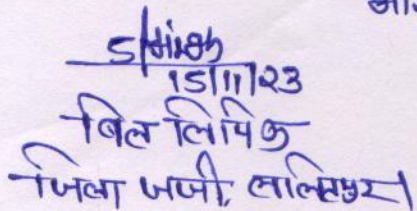 15/11/23
बिल लिपिक
जिला जजी, ललितपुर।